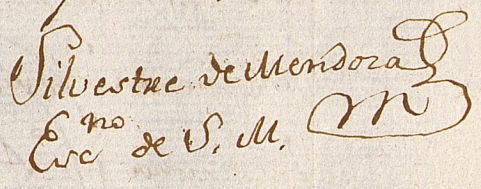 Silvestre de Mendoza
Esc.no de S. M.